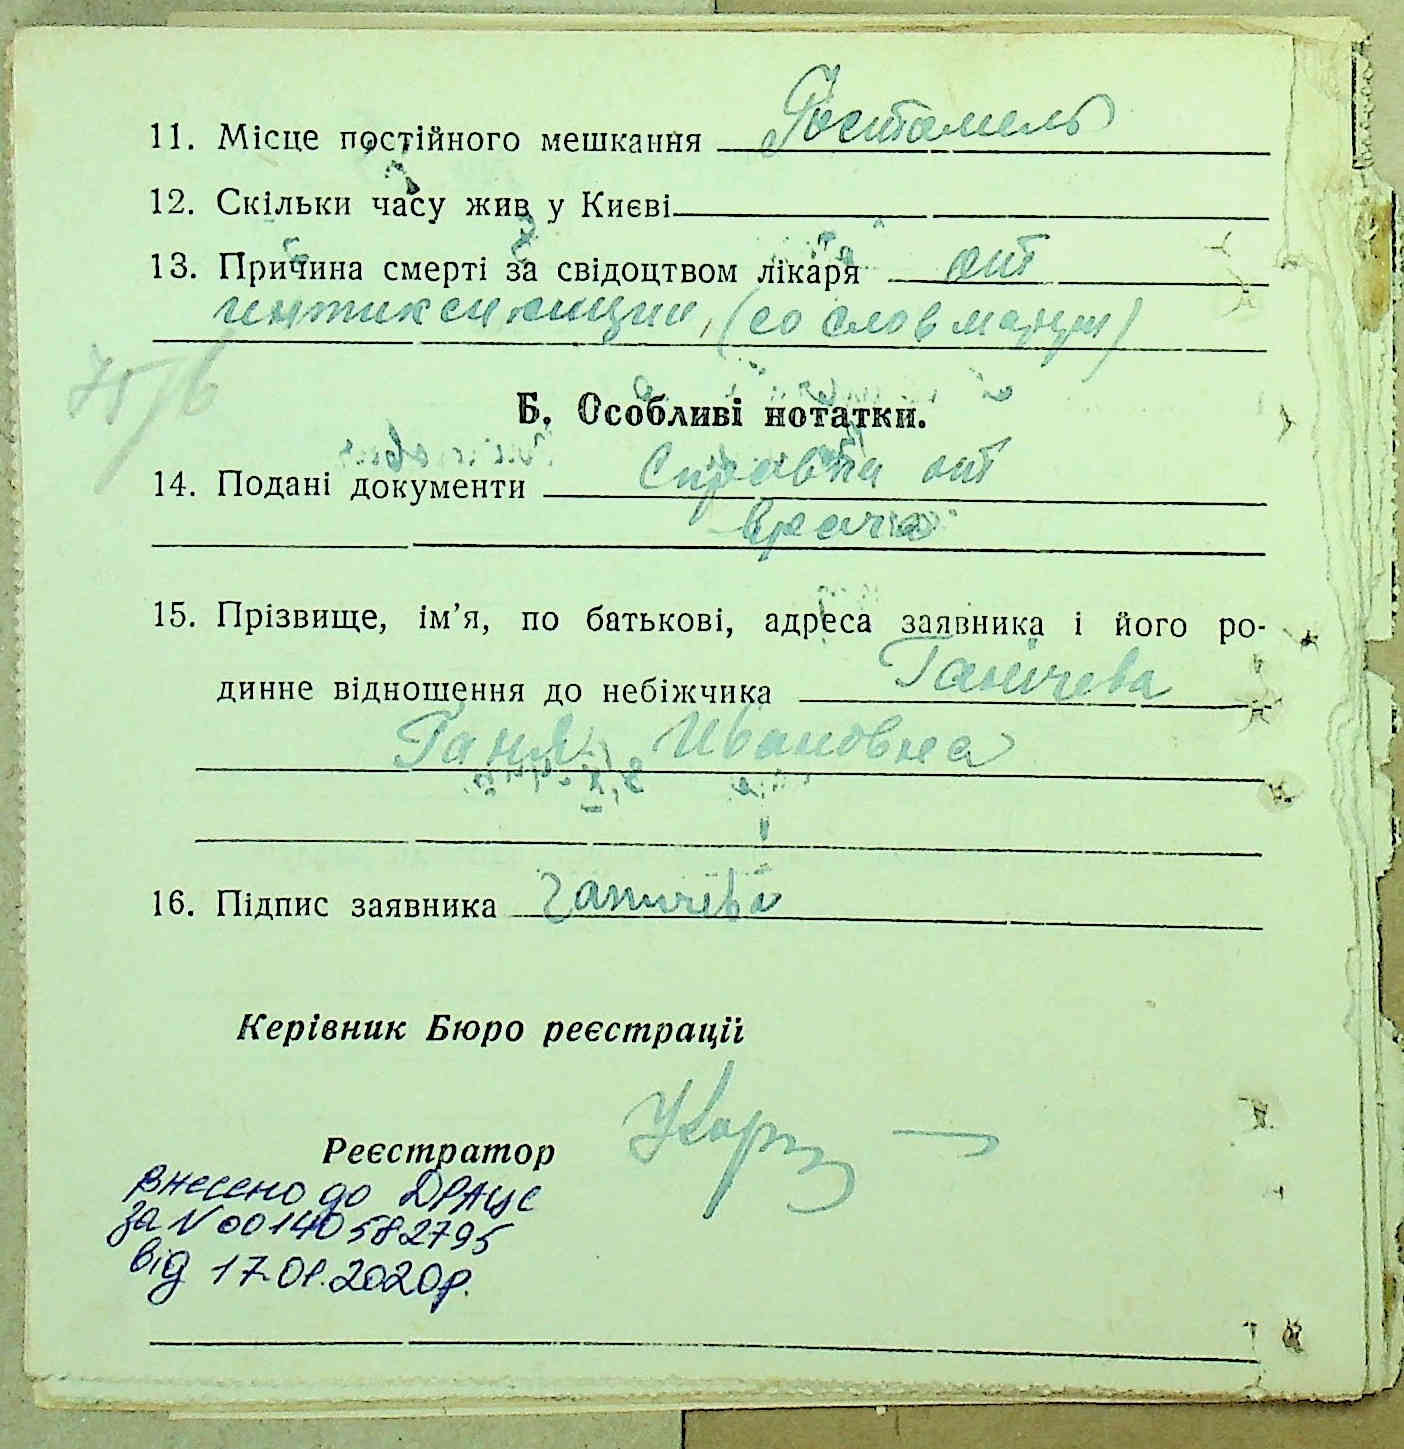 11. Місце постійного мешкання Гостомель
12. Скільки часу жив у Києві
13. Причина смерті за свідоцтвом лікаря от
интикси кации, (со слов матери)
75/в
Б. Особливі нотатки.
14. Подані документи Справка от
врача
15. Прізвище, ім’я, по батькові, адреса заявника і його ро-
динне відношення до небіжчика Ганичева
Ганя Ивановна
16. Підпис заявника Ганичева
Керівник Бюро реєстрації
Реєстратор
внесено до ДРАЦС
за N 00140582795
від 17.01.2020р.